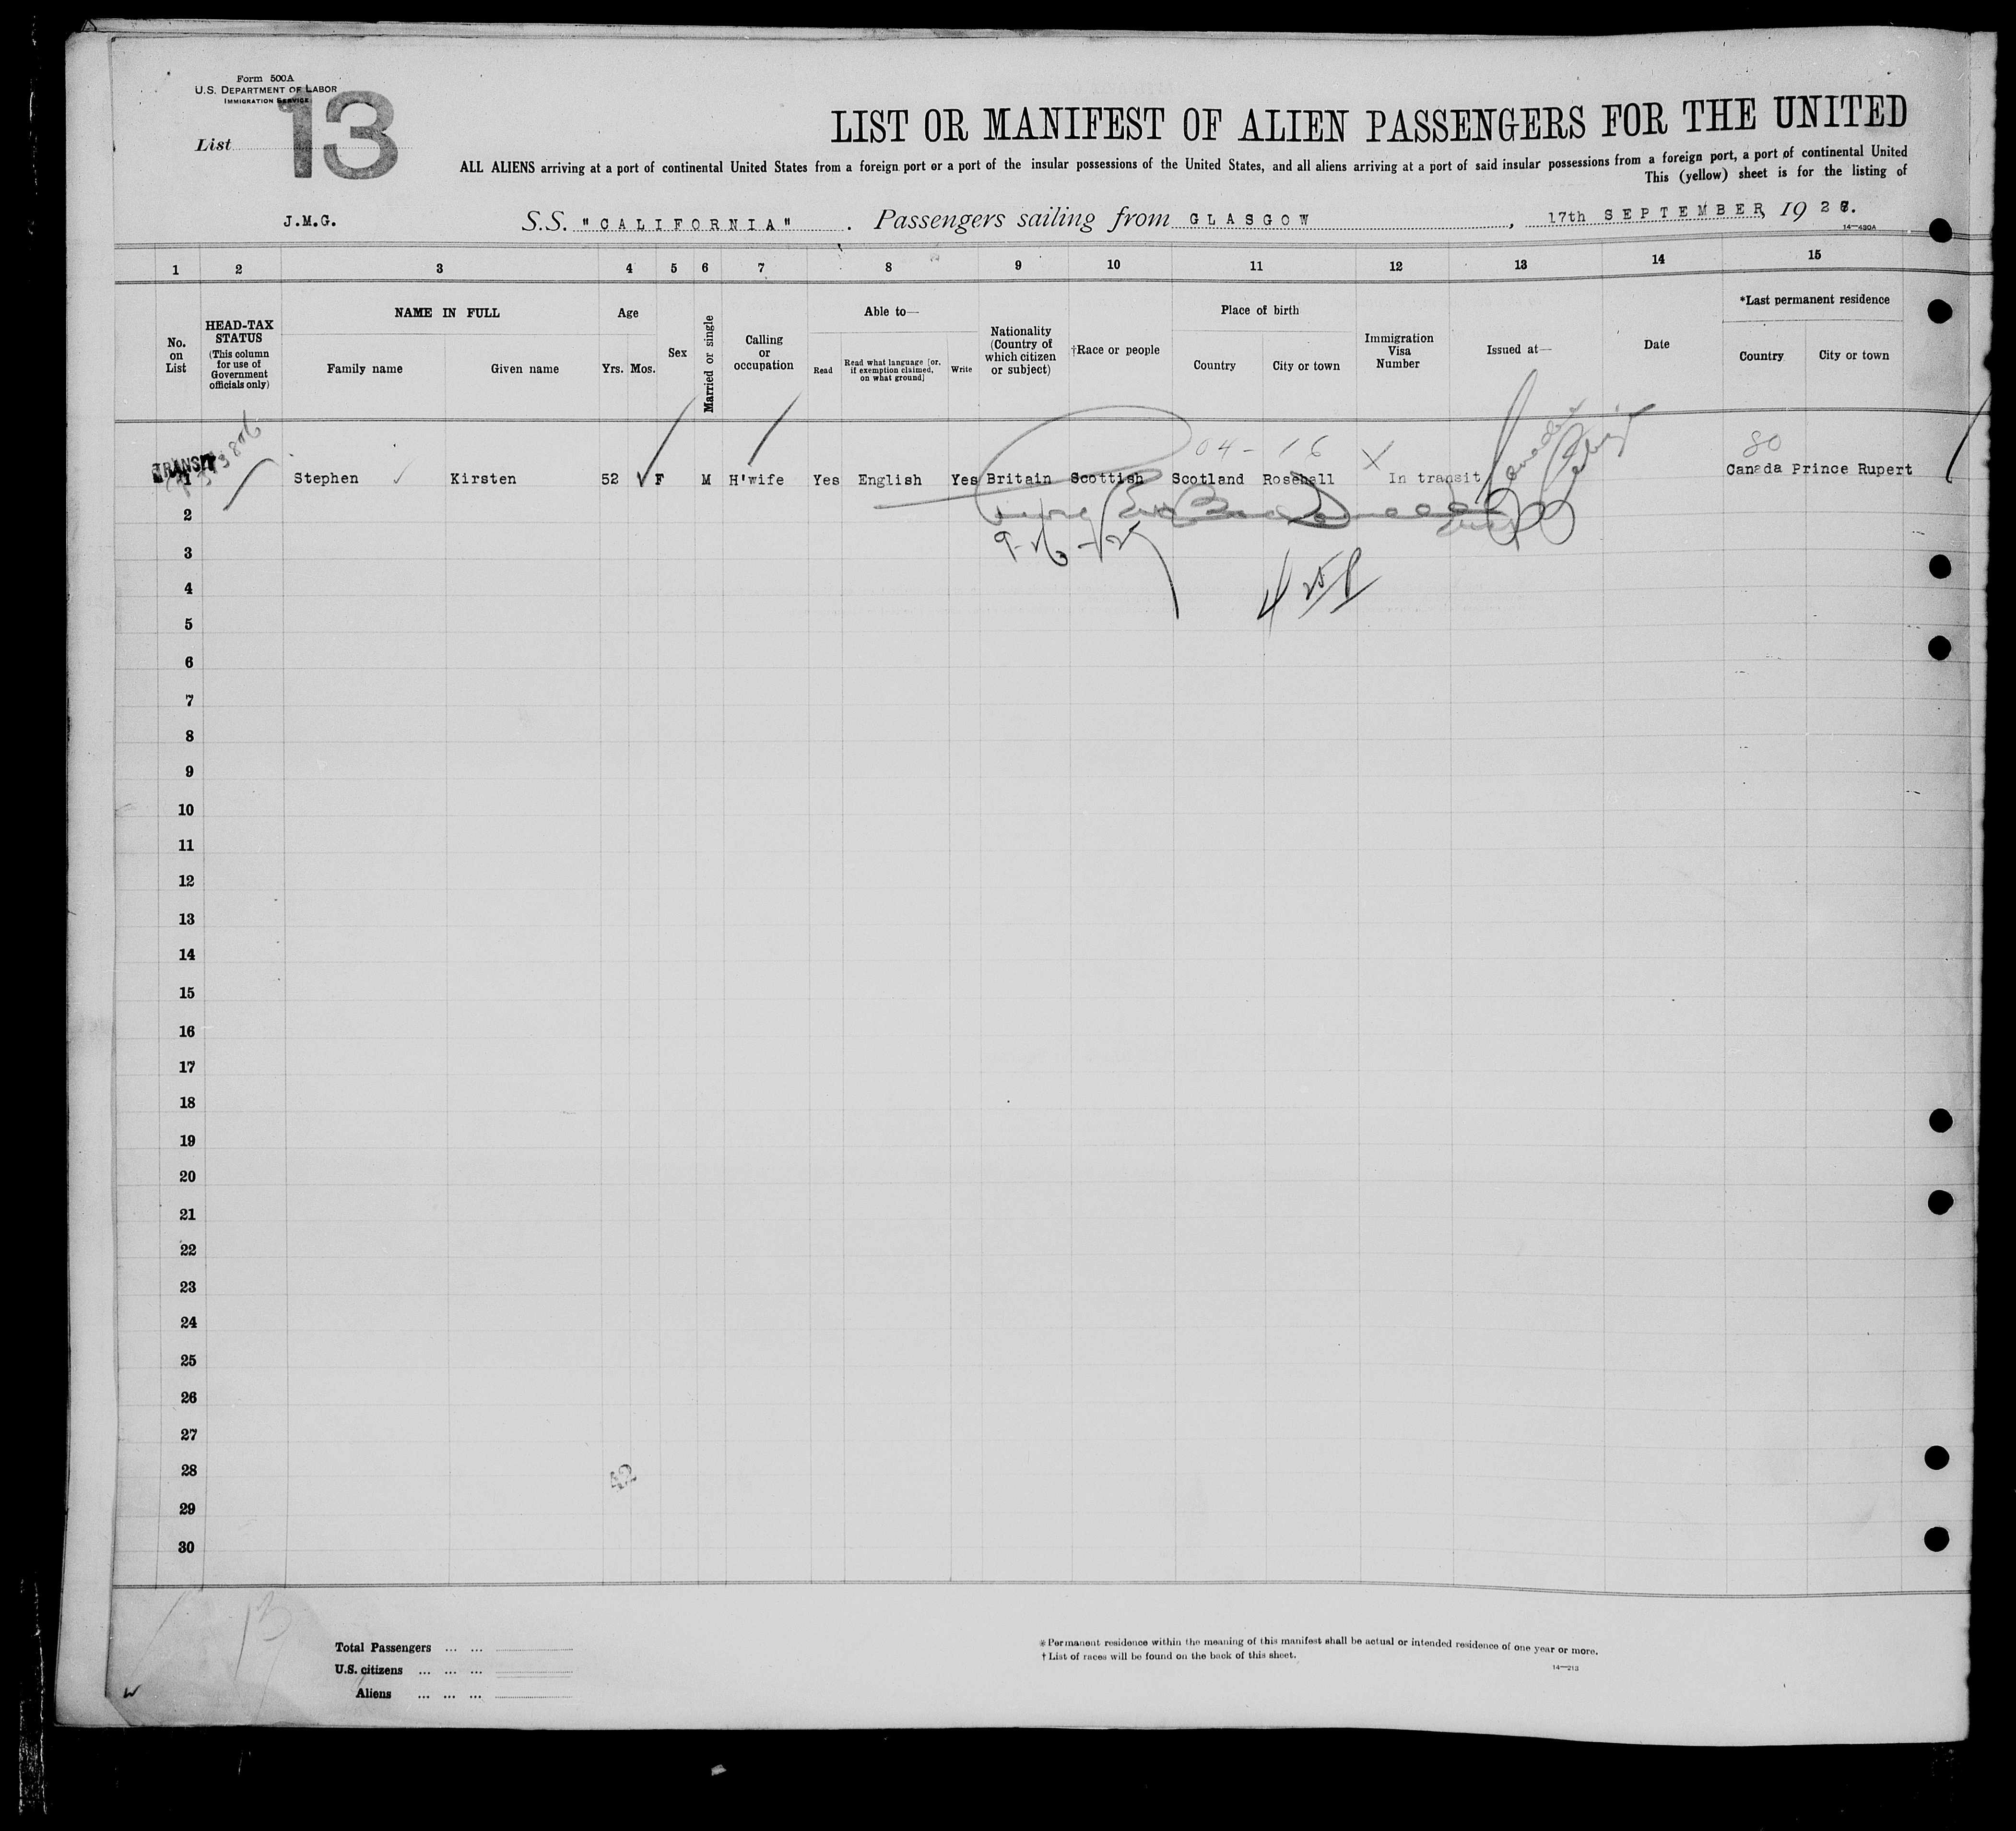 Form 500A
U.S. DEPARTMENT OF LABOR
IMMIGRATION SERVICE
List 13
LIST OR MANIFEST OF ALIEN PASSENGERS FOR THE UNITED
ALL ALIENS arriving at a port of continental United States from a foreign port or a port of the insular possessions of the United States, and all aliens arriving at a port of said insular possessions from a foreign port, a port of continental United
This (yellow) sheet is for the listing of
J.M.G. S.S. "CALIFORNIA". Passengers sailing from GLASGOW, 17th SEPTEMBER, 192
14—430A
1 2 3 4 5 6 7 8 9 10 11 12 13 14 15
No. on List
HEAD-TAX STATUS (This column for use of Government officials only)
NAME IN FULL
Family name Given name
Age
Yrs. Mos.
Sex
Married or single
Calling or occupation
Able to—
Read
Read what language [or, if exemption claimed, on what ground]
Write
Nationality (Country of which citizen or subject)
†Race or people
Place of birth
Country City or town
Immigration Visa Number
Issued at—
Date
*Last permanent residence
Country City or town
04-16 80
TRANSIT
1 Stephen Kirsten 52 F M H'wife Yes English Yes Britain Scottish Scotland Rosehall X In transit Canada Prince Rupert
2
3
4
5
6
7
8
9
10
11
12
13
14
15
16
17
18
19
20
21
22
23
24
25
26
27
28
42
29
30
13
Total Passengers ... ...
U.S. citizens ... ... ...
Aliens ... ... ...
* Permanent residence within the meaning of this manifest shall be actual or intended residence of one year or more.
† List of races will be found on the back of this sheet.
14—213